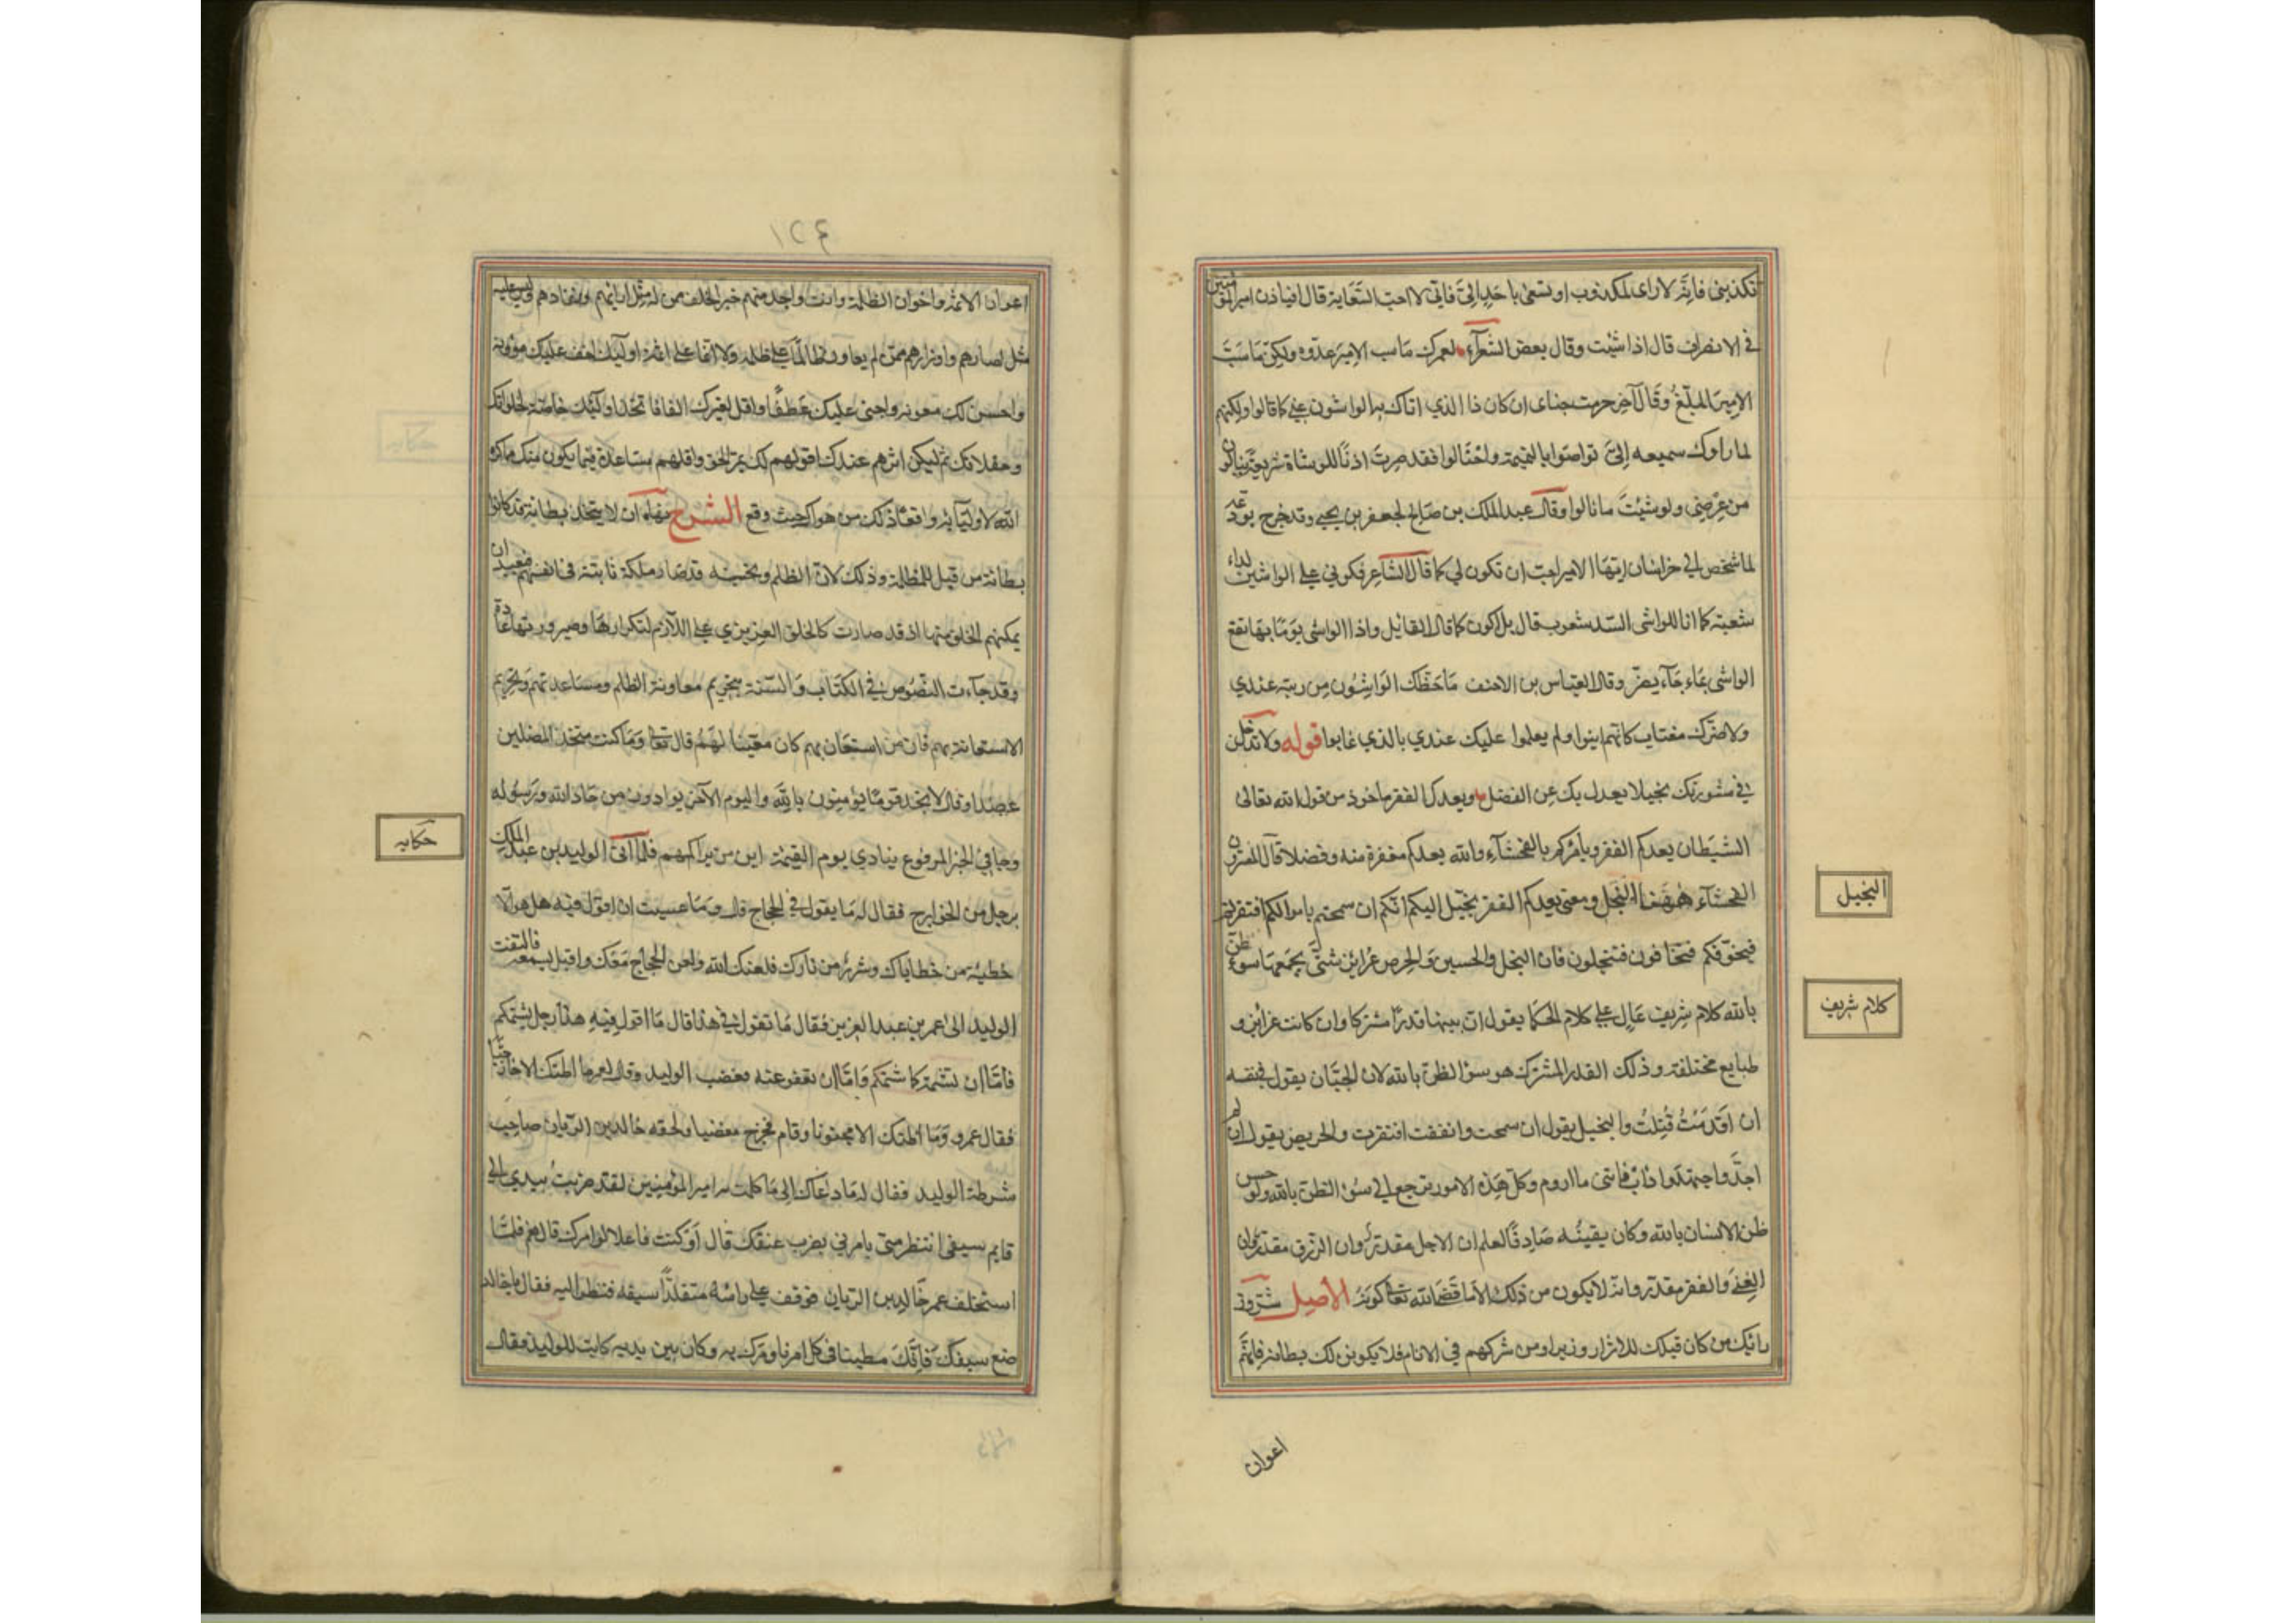 تكذبني فانه لا راى لمكذوب او تسعى باحد الىّ فاني لا احب السّعاية قال افياذن امير المؤمنين
في الانصراف قال اذا شئت وقال بعض الشعرآء لعمرك ما سب الامير عدوه ولكن ما سَبّ
الامير المبلّغُ وقال آخر حرمت مناى ان كان ذا الذي اتاك به الواشون عني كما قالوا ولكنهم
لما راوك سميعه الىّ تواصوا بالنميمة واحتالوا فقد صرت اذنًا للوشاة سريعة ينالون
من عرضي ولو شئت ما نالوا وقال عبد الملك بن صالح لجعفر بن يحيى وقد خرج يودعه
لما شخص الى خراسان ايّها الامير احب ان تكون لي كما قال الشاعر فكوني على الواشين لداء
شعبة كما انا للواشى الدّ شعوب قال بل اكون كما قال القائل واذا الواشى يومًا بها نفع
الواشى بما جآء يضرّ وقال العباس بن الاحنف ما حطّك الواشون من رتبة عندي
ولا ضرّك مغتاب كانهم اثنوا ولم يعلموا عليك عندي بالذي عابوا قوله ولا تدخلن
في مشورتك بخيلا يعدل بك عن الفضل ويعدك الفقر ماخوذ من قول الله تعالى
الشيطان يعدكم الفقر ويأمركم بالفحشآء والله يعدكم مغفرة منه وفضلا قال المفسرون
الفحشآء ههنا البخل ومعنى يعدكم الفقر يخيّل اليكم انّكم ان سمحتم باموالكم افتقرتم
فيخوّفكم فتخافون فتبخلون فان البخل والجبن والحرص غرايز شتّى يجمعها سوء ظنّ
بالله كلام شريف عال على كلام الحكما يقول ان بينها قدرًا مشتركا وان كانت غرايز و
طبايع مختلفة وذلك القدر المشترك هو سوء الظن بالله لان الجبان يقول في نفسه
ان اَقدَمتُ قُتِلتُ والبخيل يقول ان سمحت وانفقت افتقرت والحريص يقول ان لم
اجدّ واجتهد وادأب فاتنى ما اروم وكل هذه الامور ترجع الى سوء الظن بالله ولو حسن
ظن الانسان بالله وكان يقينُه صادقًا لعلم ان الاجل مقدّر وان الرّزق مقدّر وان
الغِنى والفقر مقدّر وانه لا يكون من ذلك الّا ما قضى الله تعالى كونه الاصل شر وز
رائك من كان قبلك للاشرار وزيرا ومن شركهم في الاثام فلا يكونن لك بطانة فانهم
اعوان
البخيل
كلام شريف
١٥٤
اعوان الاثمة واخوان الظلمة وانت واجد منهم خير الخلف ممن له مثل ارائهم ونفاذهم وليس عليه
مثل اصارهم واوزارهم ممن لم يعاون ظالمًا على ظلمه ولا اثما على اثمه اولئك اخف عليك مؤونة
واحسن لك معونة واحنى عليك عَطفًا واقل لغيرك الفا فاتخذ اولئك خاصّة لخلواتك
وحفلاتك ثم ليكن اثرهم عندك اقولهم لك بمر الحق واقلهم مساعدة فيما يكون منك مما كره
الله لاوليآئه واقعًا ذلك من هواك حيث وقع الشرح نهاه ان لا يتخذ بطانة قد كانوا
بطانة من قبل للظلمة وذلك لانّ الظلم وتحسينه قد صار ملكة ثابتة في انفسهم فبعيد ان
يمكنهم الخلو منها اذ قد صارت كالخلق الغريزي على اللازم لتكرارها وصيرورتها عادة
وقد جآءت النصوص في الكتاب والسّنة بتحريم معاونة الظلم ومساعدتهم وتحريم
الاستعانة بهم فان من استعان بهم كان معينا لهم قال تعالى وما كنت متخذ المضلين
عضدا وقال لا تجد قومًا يؤمنون بالله واليوم الآخر يوادون من حاد الله ورسوله
وجا في الخبر المرفوع ينادي يوم القيمة اين من برا لهم فلما اتى الوليد بن عبد الملك
برجل من الخوارج فقال له ما يقول في الحجاج قال وما عسيت ان اقول فيه هل هو الا
خطيئة من خطاياك وشرر من نارك فلعنك الله ولعن الحجاج معك واقبل يشتمه فالتفت
الوليد الى عمر بن عبد العزيز فقال ما تقول في هذا قال ما اقول فيه هذا رجل يشتمكم
فامّا ان تشتمه كما شتمكم وامّا ان تعفو عنه فغضب الوليد وقال لعمر ما اظنك الا خارجيًّا
فقال عمر وما اظنك الا مجنونا وقام فخرج مغضبا ولحقه خالد بن الريان صاحب
شرطة الوليد فقال له ما دعاك الى ما كلمت به امير المؤمنين لقد ضربتُ بيدي الى
قايم سيفى انتظر متى يامرني بضرب عنقك قال اَوَ كنت فاعلا لو امرك قال نعم فلمّا
استخلف عمر خالد بن الريان فوقف على راسه متقلدًا سيفه فنظر اليه فقال يا خالد
ضع سيفك فانّك مطيعنا في كل امر نامرك به وكان بين يديه كاتب للوليد فقال
حكايه